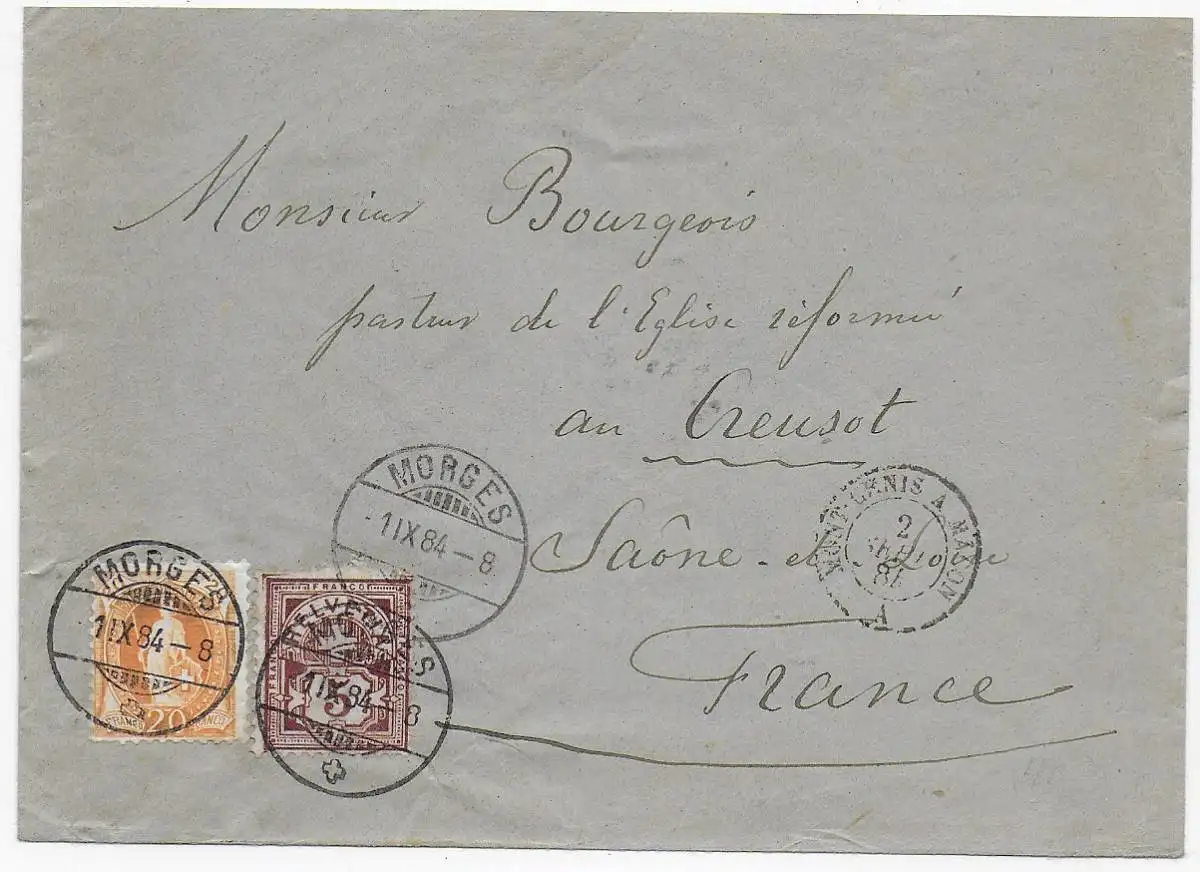 Monsieur Bourgeois
pasteur de l'Eglise réformée
au Creusot
Saône-et-Loire
France
MORGES
-1 IX 84-8
MORGES
-1 IX 84-8
FRANCO 20 FRANCO
FRANCO
HELVETIA
5
1 IX 84-8
MONT-CENIS A MACON
2
SEPT
84
A